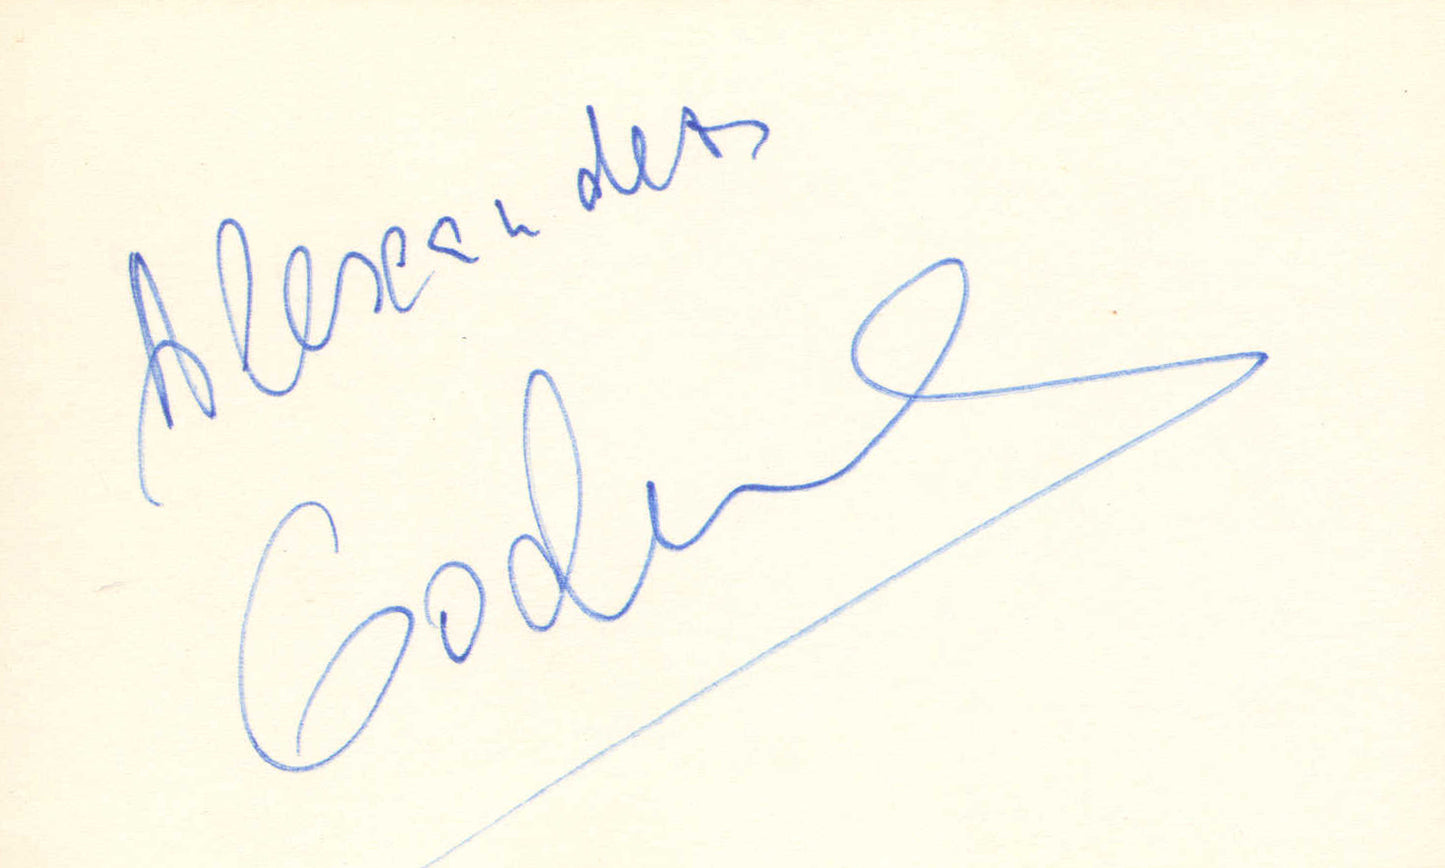 Alexander
Godunov